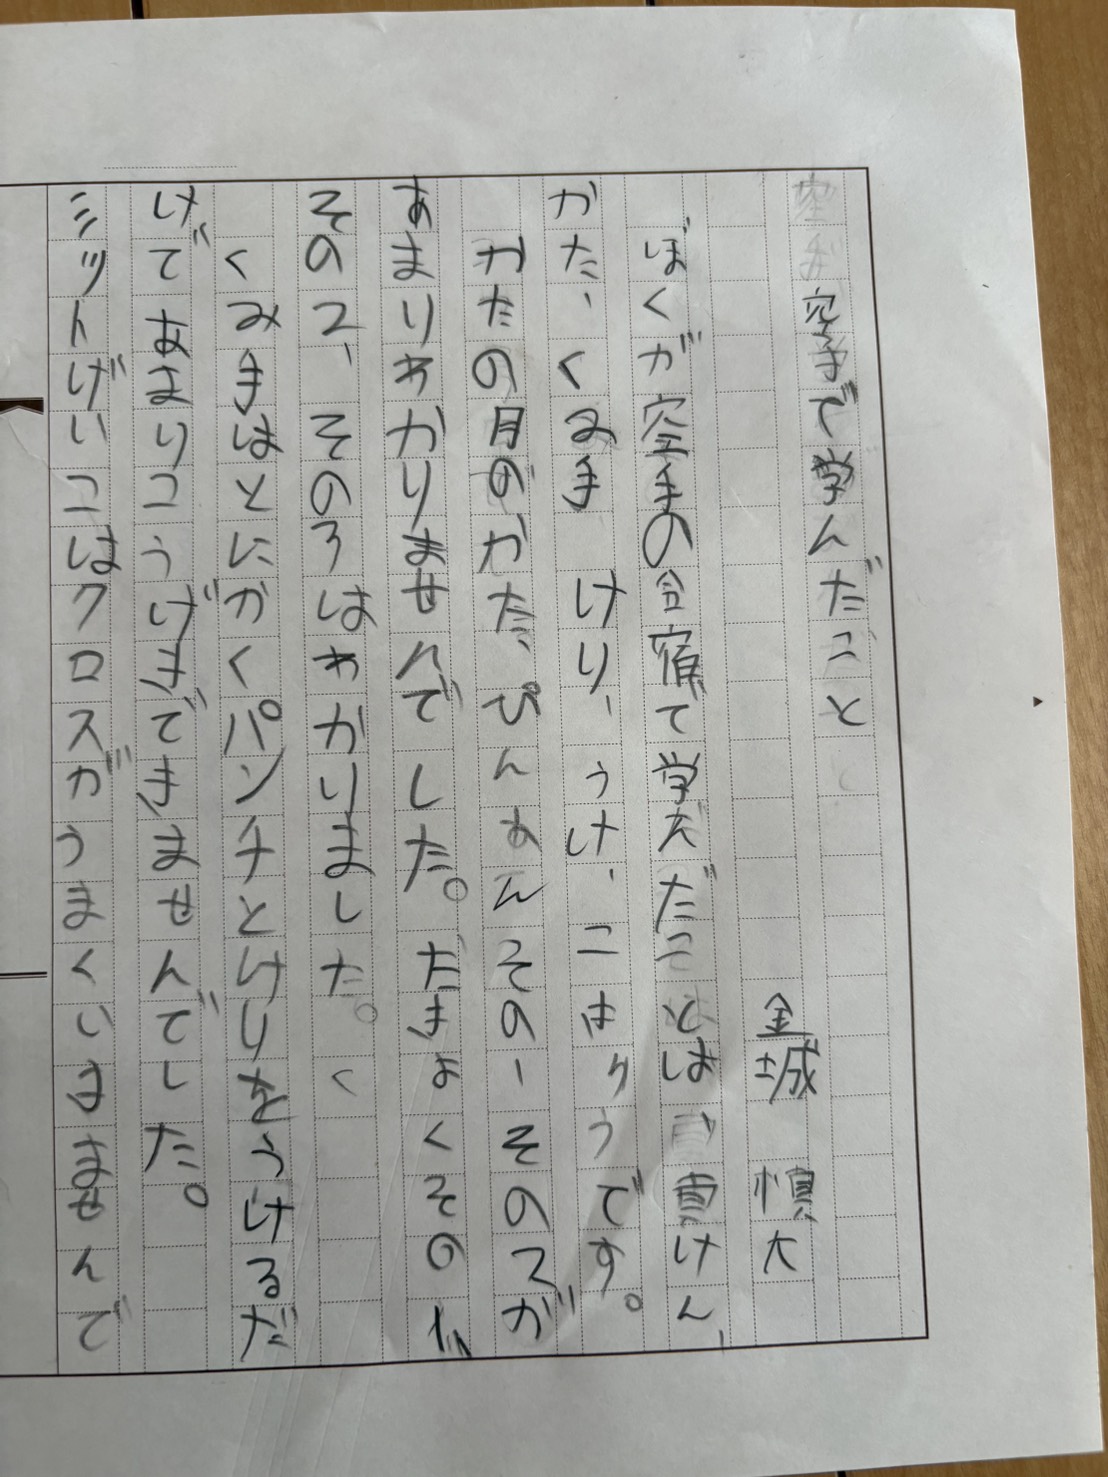 空手で学んだこと
金城 慎大
ぼくが空手の合宿で学んだことは、貫けん、
かた、くみ手 けり、うけ、こはりうです。
かたの月のかた、ぴんあんその一その2が
あまりわかりませんでした。だきょくその
その2、その3はわかりました。く
くみ手はとにかくパンチとけりをうけるだ
けであまりこうげきできませんでした。
ミットげいこはクロスがうまくいきませんで